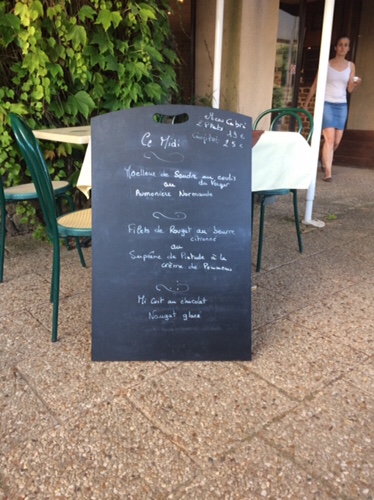 Ce Midi
Menu
2 Plats 19 €
Complet 25 €
Moelleux de Sandre au coulis
ou du Potager
Aumonière Normande
Filets de Rouget au beurre
citronné
ou
Suprême de Pintade à la
crème de Pommeau
Mi Cuit au chocolat
Nougat glacé